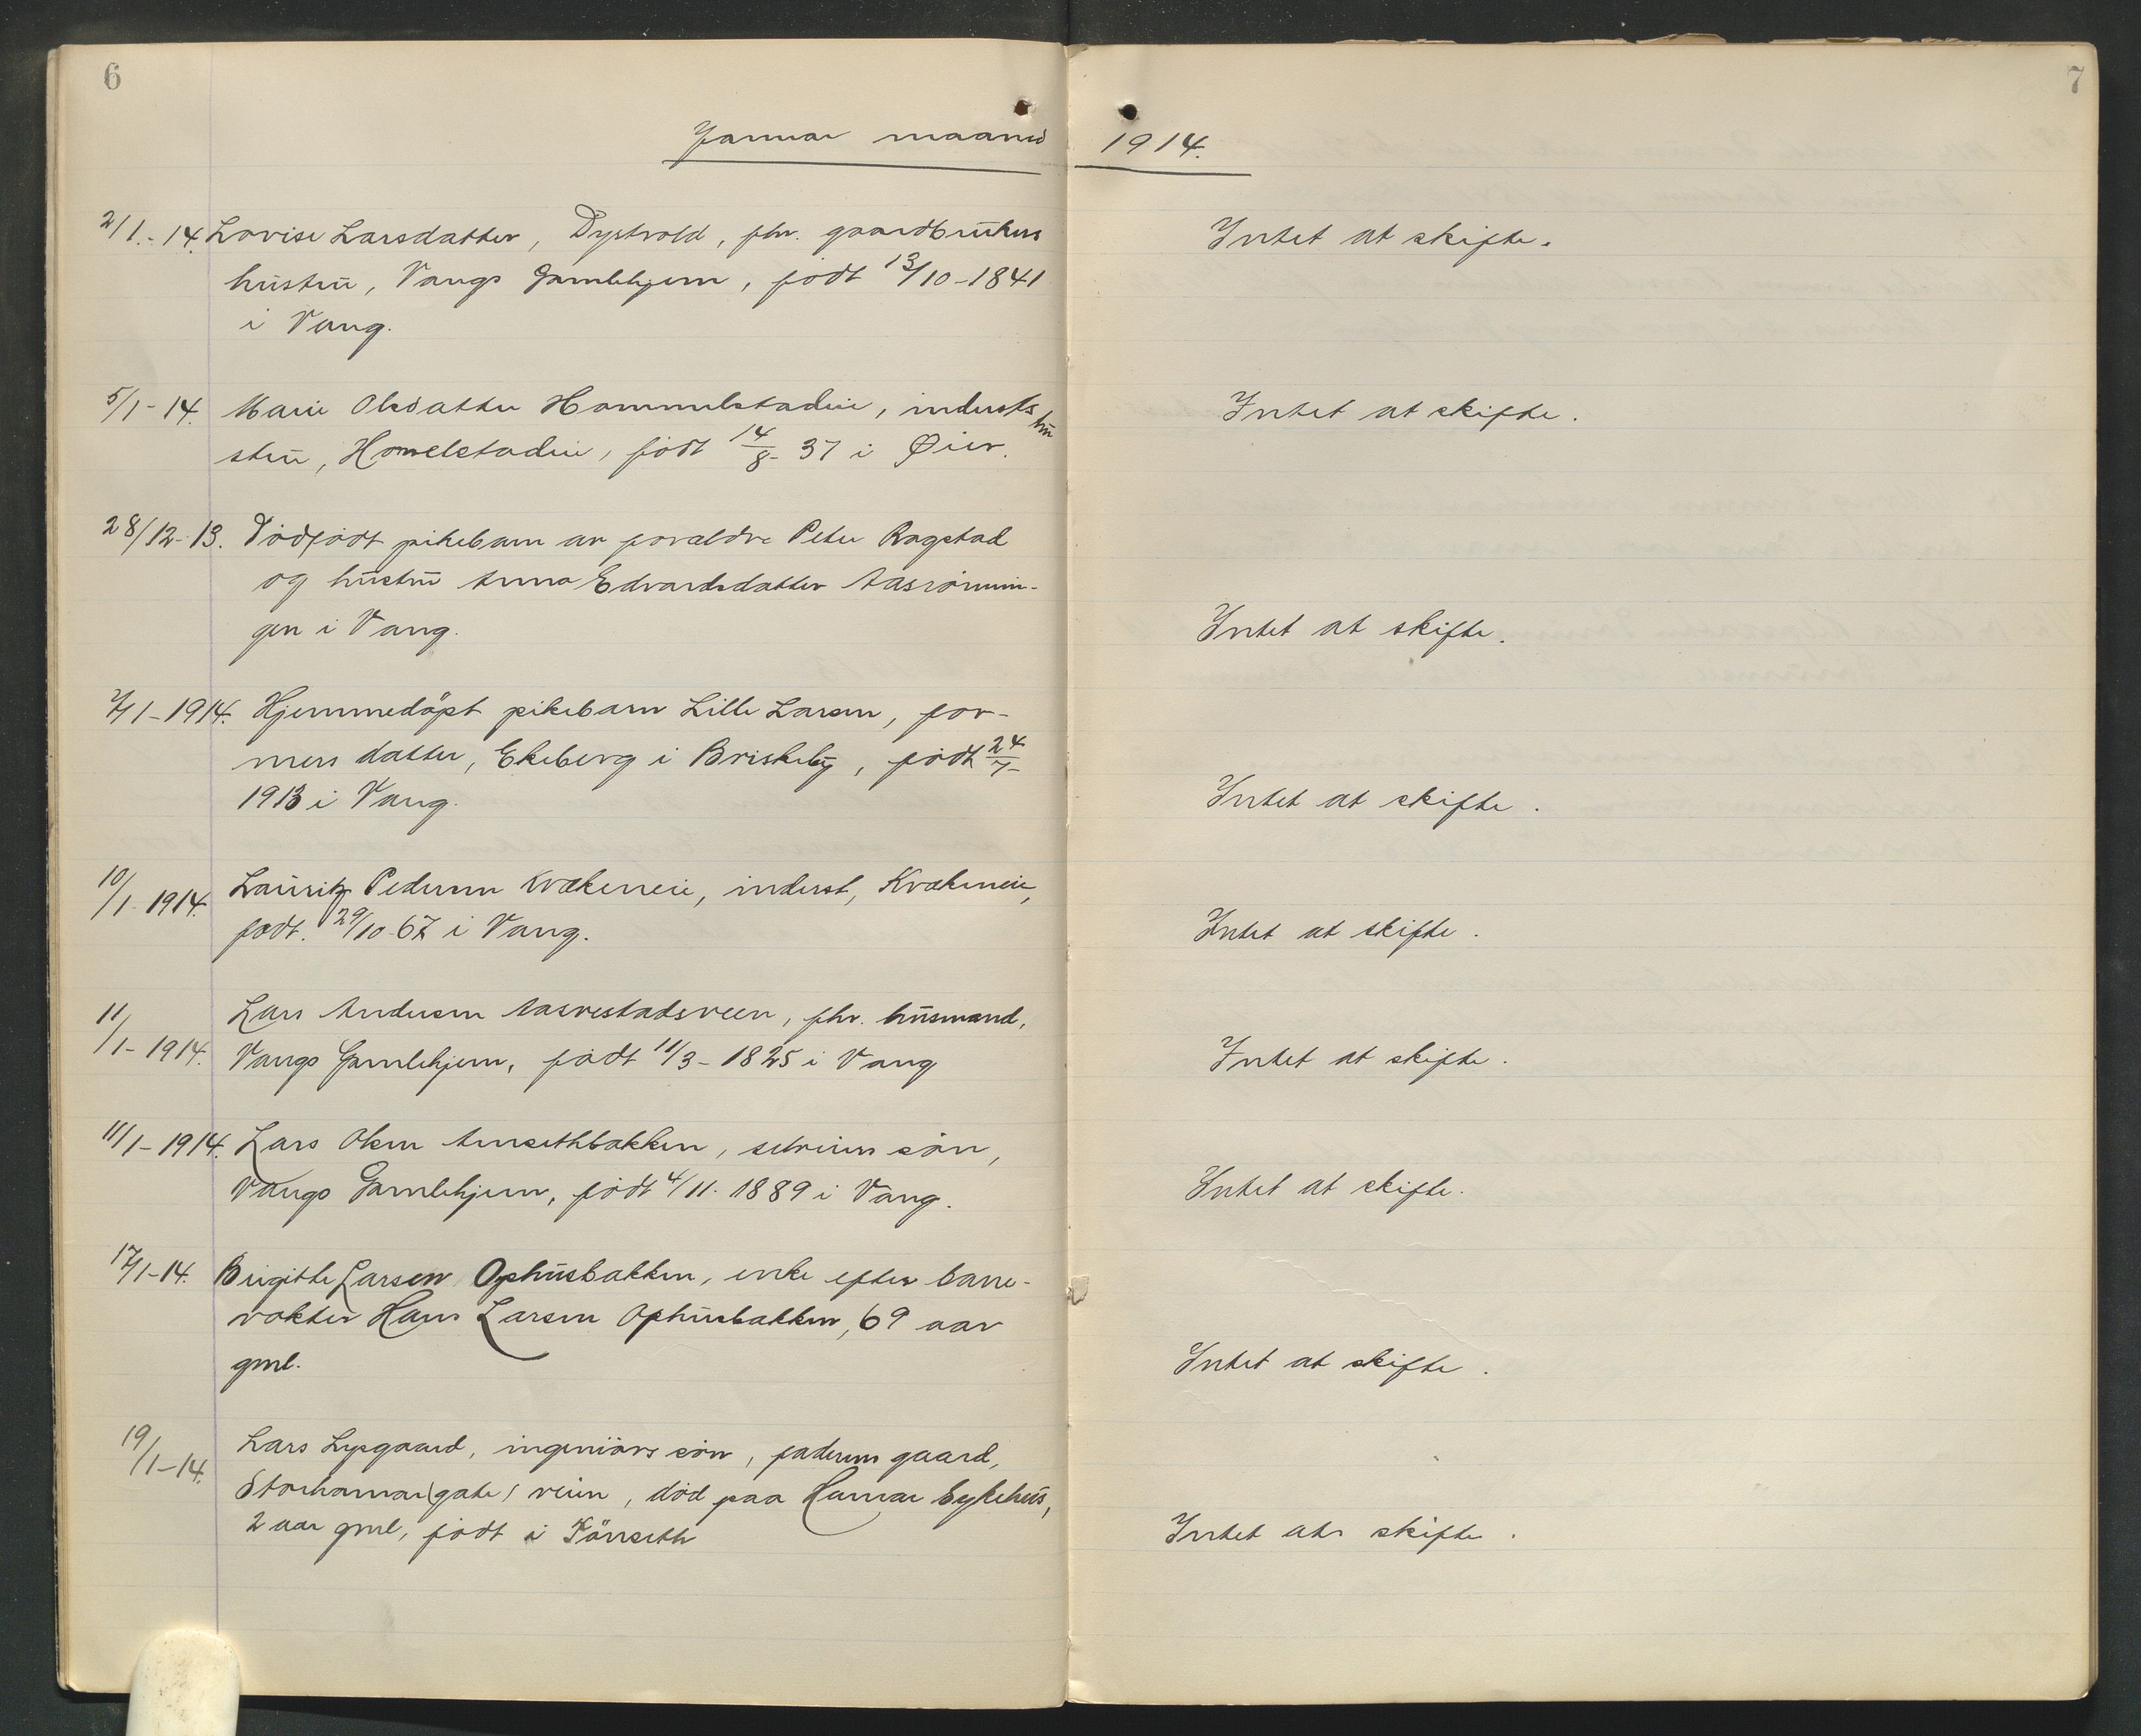 6
7
Januar maaned 1914.
2/1.-14. Lovise Larsdatter, Dystvold, fhv. gaardbrukers
hustru, Vangs Gamlehjem, født 13/10-1841
i Vang.
Intet at skifte.
5/1-14. Marie Olsdatter Hommelstadeie, indersts hu
stru, Homelstadeie, født 14/8-37 i Øier.
Intet at skifte.
28/12-13. Dødfødt pikebarn av forældre Peter Ragstad
og hustru Anna Edvardsdatter Aasrømnin-
gen i Vang.
Intet at skifte.
4/1-1914. Hjemmedöpt pikebarn Lille Larsen, for-
mers datter, Ekeberg i Briskeby, født 24/7-
1913 i Vang.
Intet at skifte.
10/1-1914. Lauritz Pedersen Kvækeneie, inderst, Kvækeneie,
født. 29/10-67 i Vang.
Intet at skifte.
11/1-1914. Lars Andersen Aasvestadsveen, fhv. husmand,
Vangs Gamlehjem, født 11/3-1825 i Vang
Intet at skifte.
11/1-1914. Lars Olsen Amsethbakken, selveiers søn,
Vangs Gamlehjem, født 4/11-1889 i Vang.
Intet at skifte.
17/1-14. Birgitte Larsen Ophusbakken, enke efter bane-
vokter Hans Larsen Ophusbakken, 69 aar
gml.
Intet at skifte.
19/1-14. Lars Lysgaard, ingeniörs sön, faderens gaard,
Storhamar(gate) veien, död paa Hamar Sykehus,
2 aar gml, født i Fönseth
Intet at skifte.